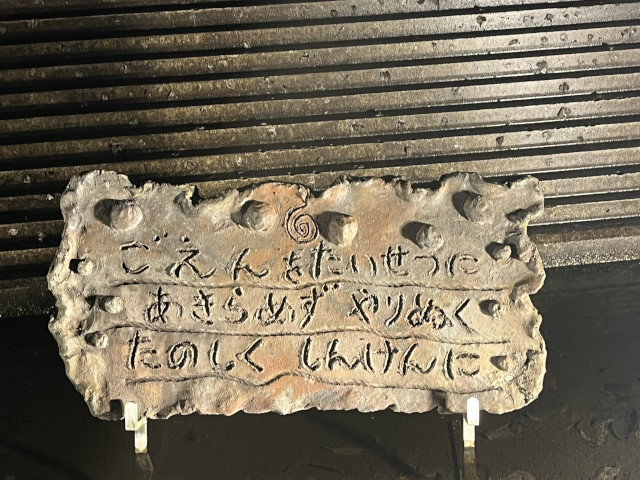 ごえんをたいせつに
あきらめず やりぬく
たのしく しんけんに